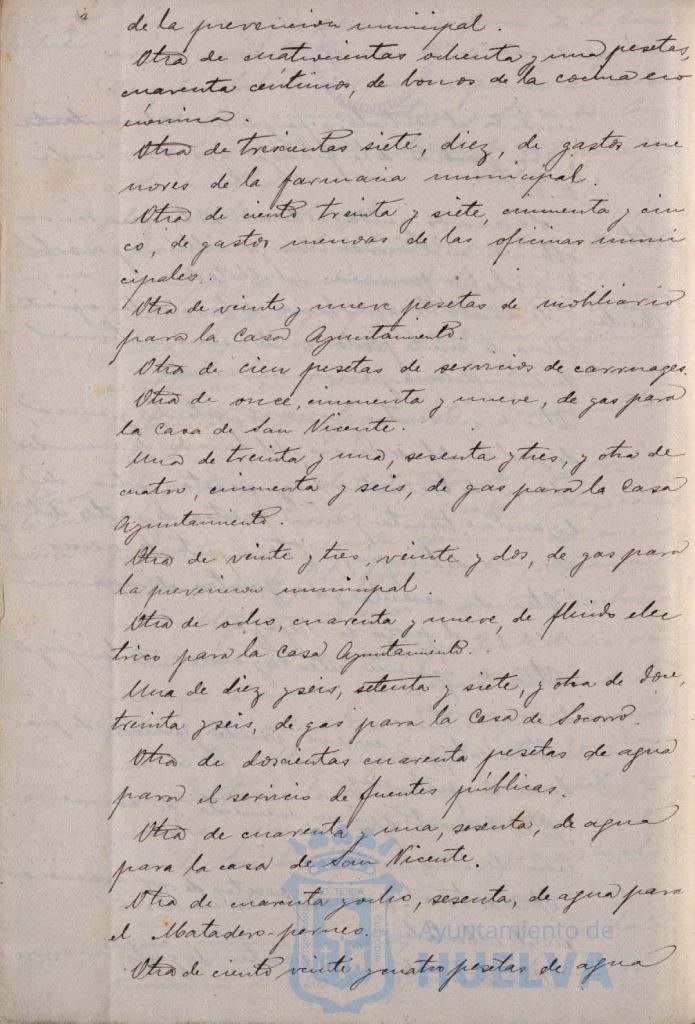 de la prevencion municipal.
Otra de cuatrocientas ochenta y una pesetas,
cuarenta céntimos, de bonos de la cocina eco
nómica.
Otra de trescientas siete, diez, de gastos me
nores de la farmacia municipal.
Otra de ciento treinta y siete, cincuenta y cin
co, de gastos menores de las oficinas muni
cipales.
Otra de veinte y nueve pesetas de mobiliario
para la Casa Ayuntamiento.
Otra de cien pesetas de servicios de carruages.
Otra de once, cincuenta y nueve, de gas para
la casa de San Vicente.
Una de treinta y una, sesenta y tres, y otra de
cuatro, cincuenta y seis, de gas para la Casa
Ayuntamiento.
Otra de veinte y tres, veinte y dos, de gas para
la prevencion municipal.
Otra de ocho, cuarenta y nueve, de fluido elec
trico para la Casa Ayuntamiento.
Una de diez y seis, setenta y siete, y otra de doce,
treinta y seis, de gas para la Casa de Socorro.
Otra de doscientas cuarenta pesetas de agua
para el servicio de fuentes públicas.
Otra de cuarenta y una, sesenta, de agua
para la casa de San Vicente.
Otra de cuarenta y ocho, sesenta, de agua para
el Matadero
Otra de ciento veinte y cuatro pesetas de agua
Ayuntamiento de
HUELVA